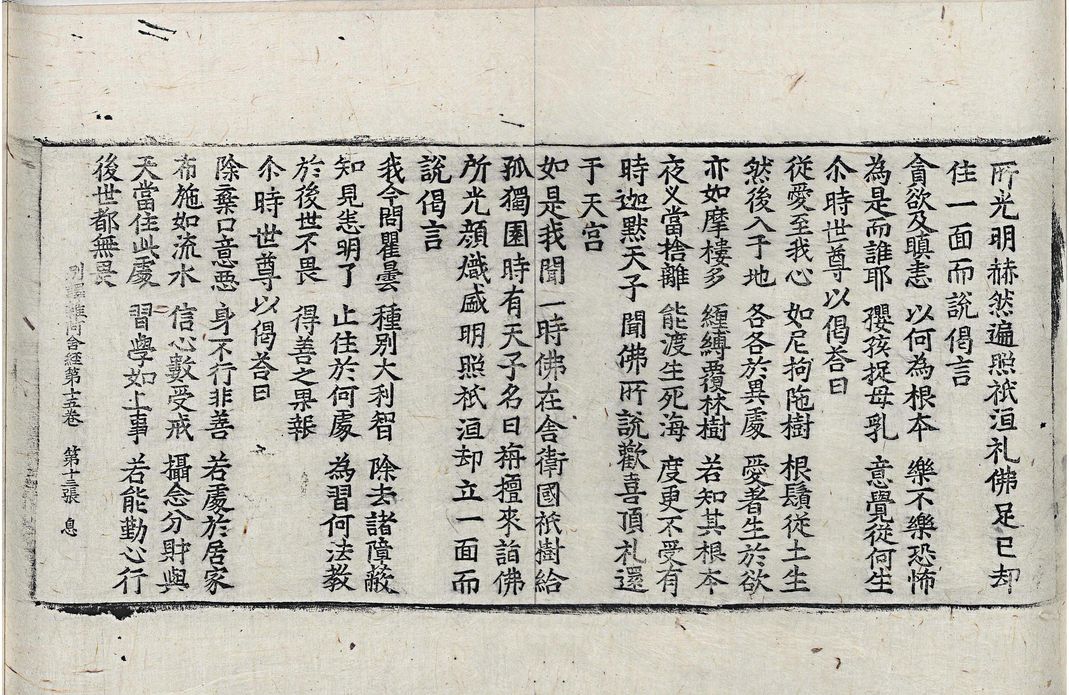 所光明赫然遍照祇洹礼佛足已却
住一面而說偈言
貪欲及瞋恚 以何為根本 樂不樂恐怖
為是而誰耶 孾孩捉母乳 意覺從何生
尒時世尊以偈荅曰
從愛至我心 如尼拘陁樹 根鬚從土生
然後入于地 各各於異處 愛著生於欲
亦如摩樓多 纏縛覆林樹 若知其根本
夜叉當捨離 能渡生死海 度更不受有
時迦默天子聞佛所說歡喜頂礼還
于天宮
如是我聞一時佛在舍衛國祇樹給
孤獨園時有天子名曰栴檀來詣佛
所光顏熾盛明照祇洹却立一面而
說偈言
我今問瞿曇 種別大利智 除去諸障蔽
知見悉明了 止住於何處 為習何法教
於後世不畏 得善之果報
尒時世尊以偈荅曰
除棄口意惡 身不行非善 若處於居家
布施如流水 信心數受戒 攝念分財與
天當住此處 習學如上事 若能勤心行
後世都無畏
別譯雜阿含經第十五卷 第十三張 息